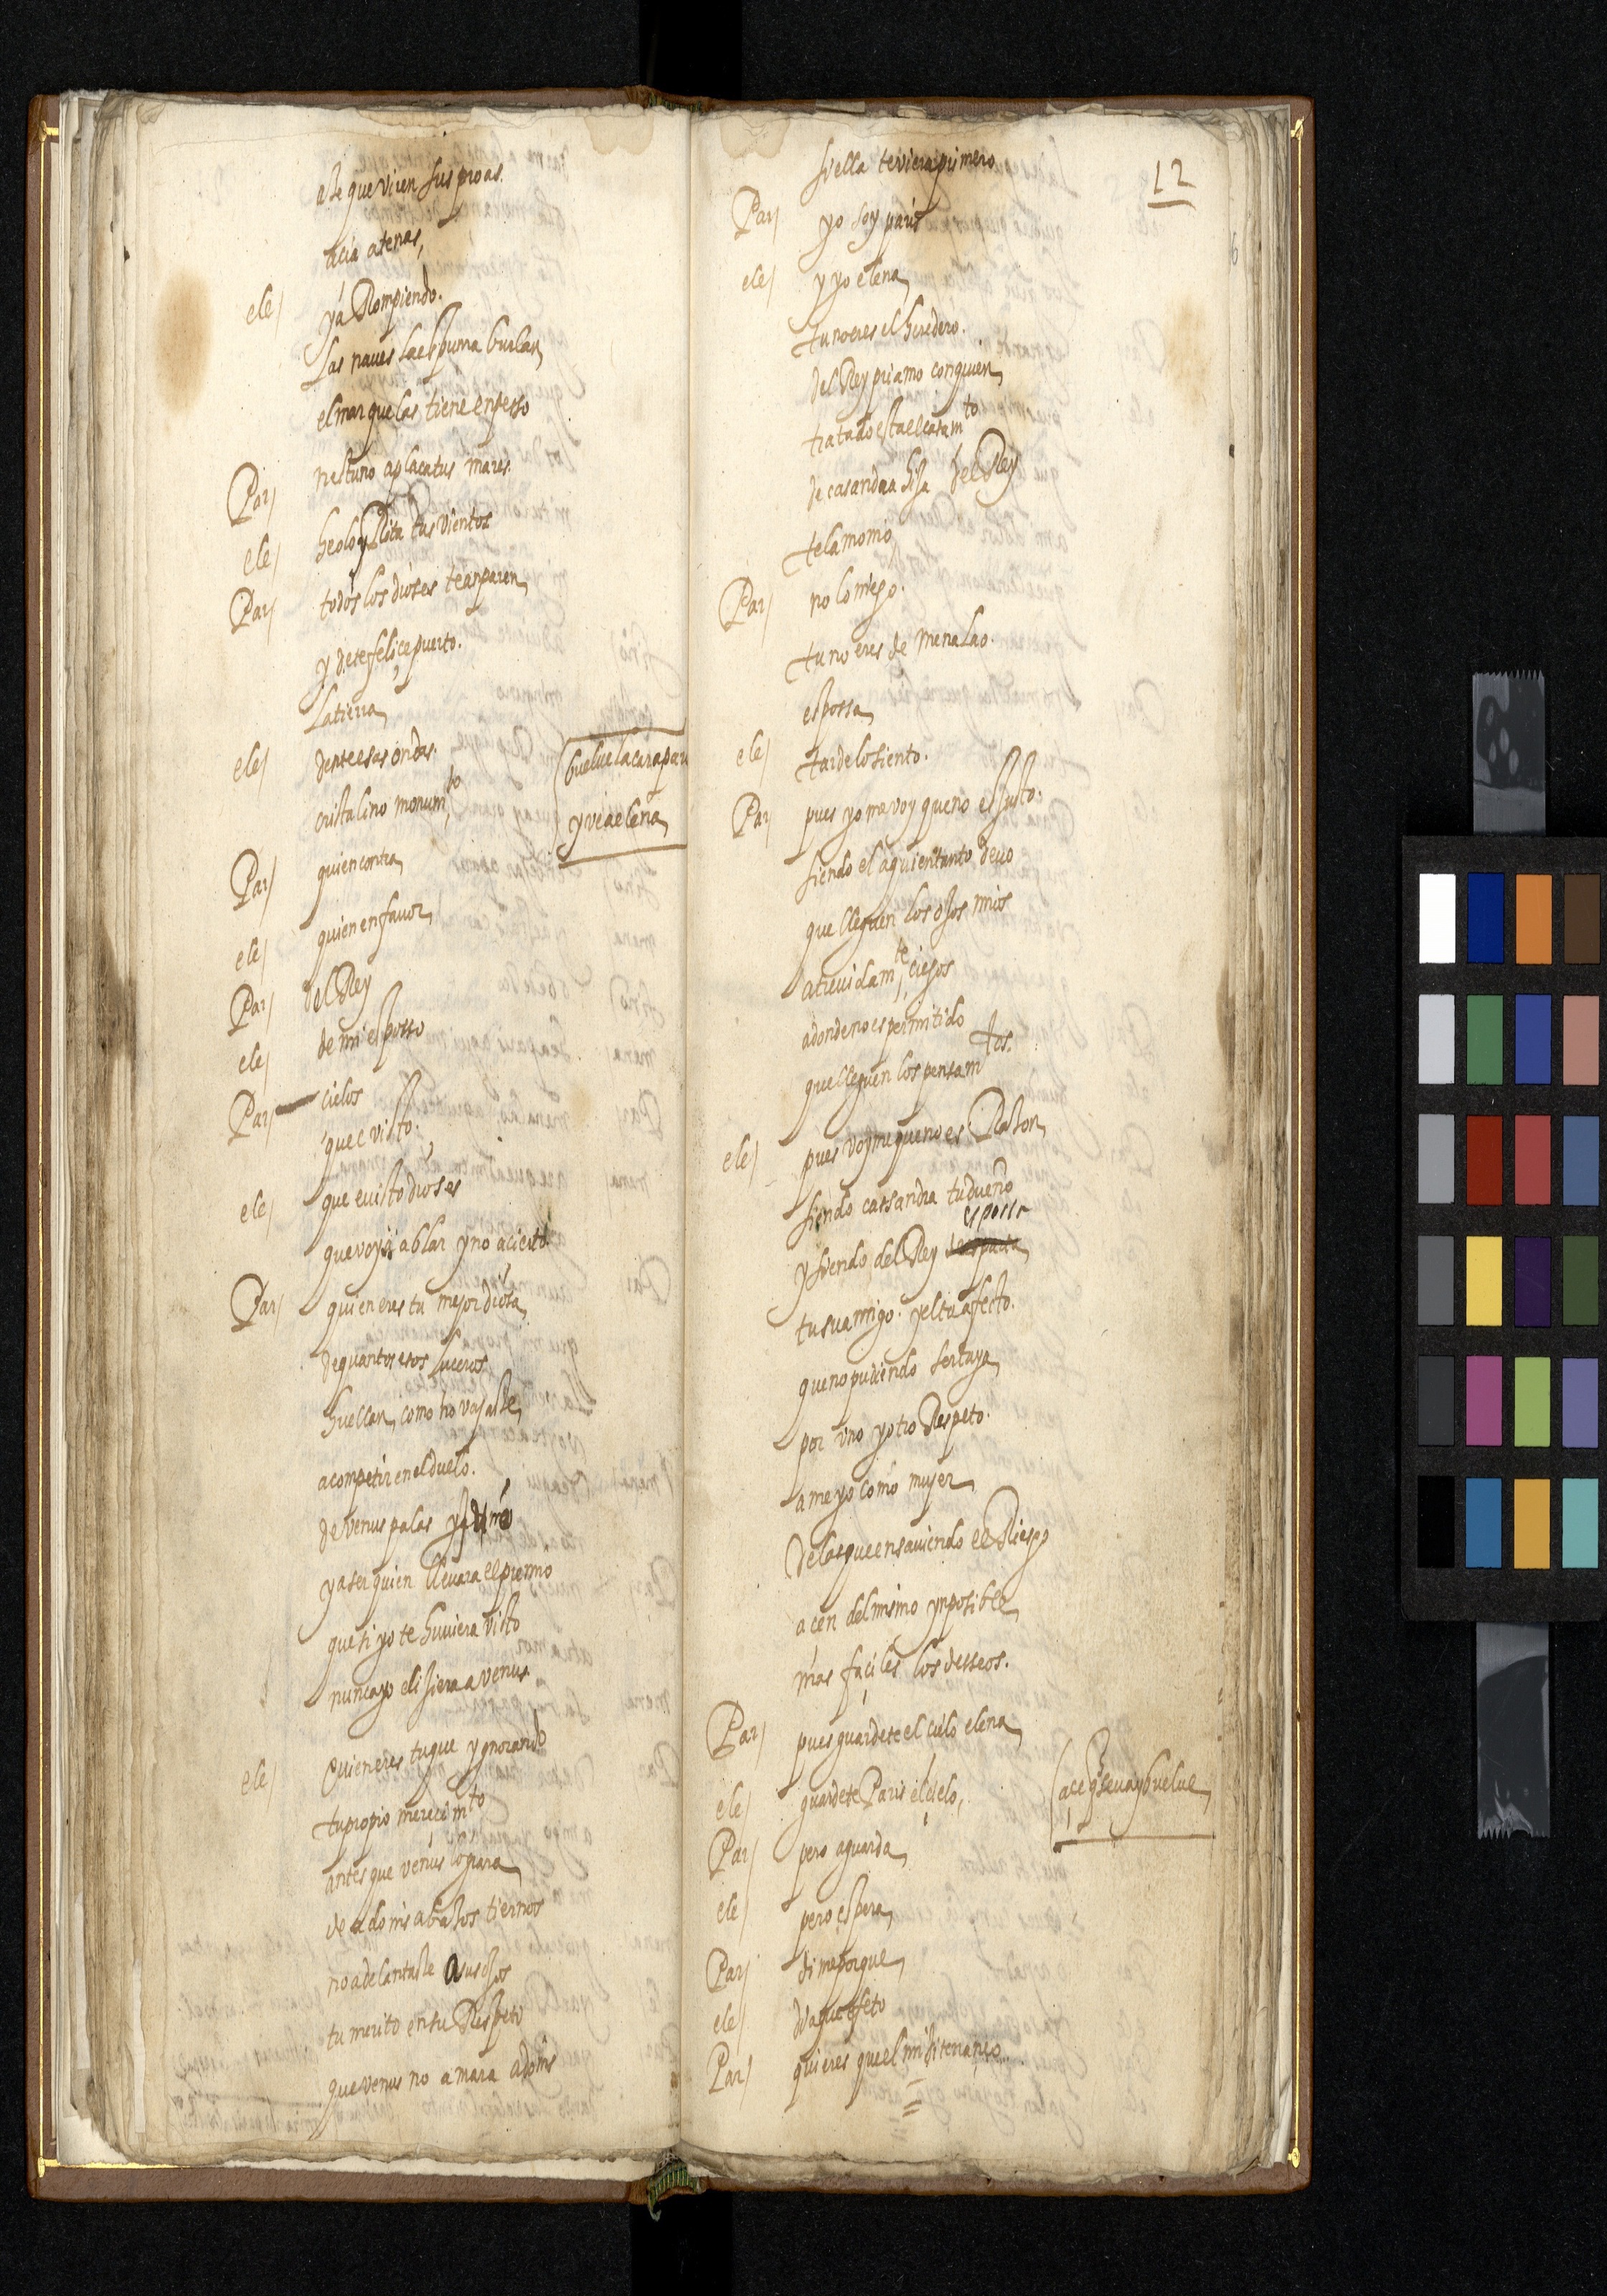 ase que viren sus proas.
acia atenas,
ele/ ya Rompiendo.
las naues la espuma burlan
el mar que las tiene en pesso
Par/ nestuno aplaca tus mares.
ele/ heolo y Rita tus vientos
Par/ todos los dioses te anparen
y dete felice puerto.
la tierra
ele/ dente esas ondas.
cristalino monumto
(buelue la cara par
y ve a elena
Par/ quien contra
ele/ quien en fauor
Par/ del Rey
ele/ de mi esposso
Par/ cielos
que e visto.
ele/ que e uisto dioses
que voy a ablar y no acierto
Par/ quien eres tu mejor diosa
de quantos esos luceros
huellan, como no vajaste
a competir en el duelo.
de venus palas y juno
ya ser quien lleuara el premio
que si yo te huuiera visto
nunca yo elijiera a venus
ele/ Quien eres tu que ygnorando
tu propio merecimto
antes que venus lograra
de adonis abrasos tiernos
no adelantaste a sus ojos
tu merito en tu Respeto
que venus no amara adonis
12
si ella te viera primero
Par/ yo soy paris
ele/ y yo elena
tu no eres el heredero.
del Rey priamo con quien
tratado esta el casamto
de casandra hija del Rey
telamonio
Par/ no lo niego.
tu no eres de menalao.
espossa
ele/ tarde lo siento.
Par/ pues yo me voy que no es justo.
siendo el a quien tanto deuo
que lleguen los ojos mios
atreuidamte ciegos
a donde no es permitido
que lleguen los pensamtos.
ele/ pues voyme que no es Rason
siendo cassandra tu dueño
esposso
y siendo del Rey
tu su amigo. y el tu afecto.
que no pudiendo ser tuya
por vno y otro Respeto.
ame yo como mujer
de las que en sauiendo el Riesgo
acen del mismo ynposible
mas faciles los desseos.
Par/ pues guardete el cielo elena
ele/ guardete Paris el cielo,
(ace q se va y buelue
Par/ pero aguarda
ele/ pero espera
Par/ dime porque
ele/ di a que efeto
Par/ quieres que el miditeraneo